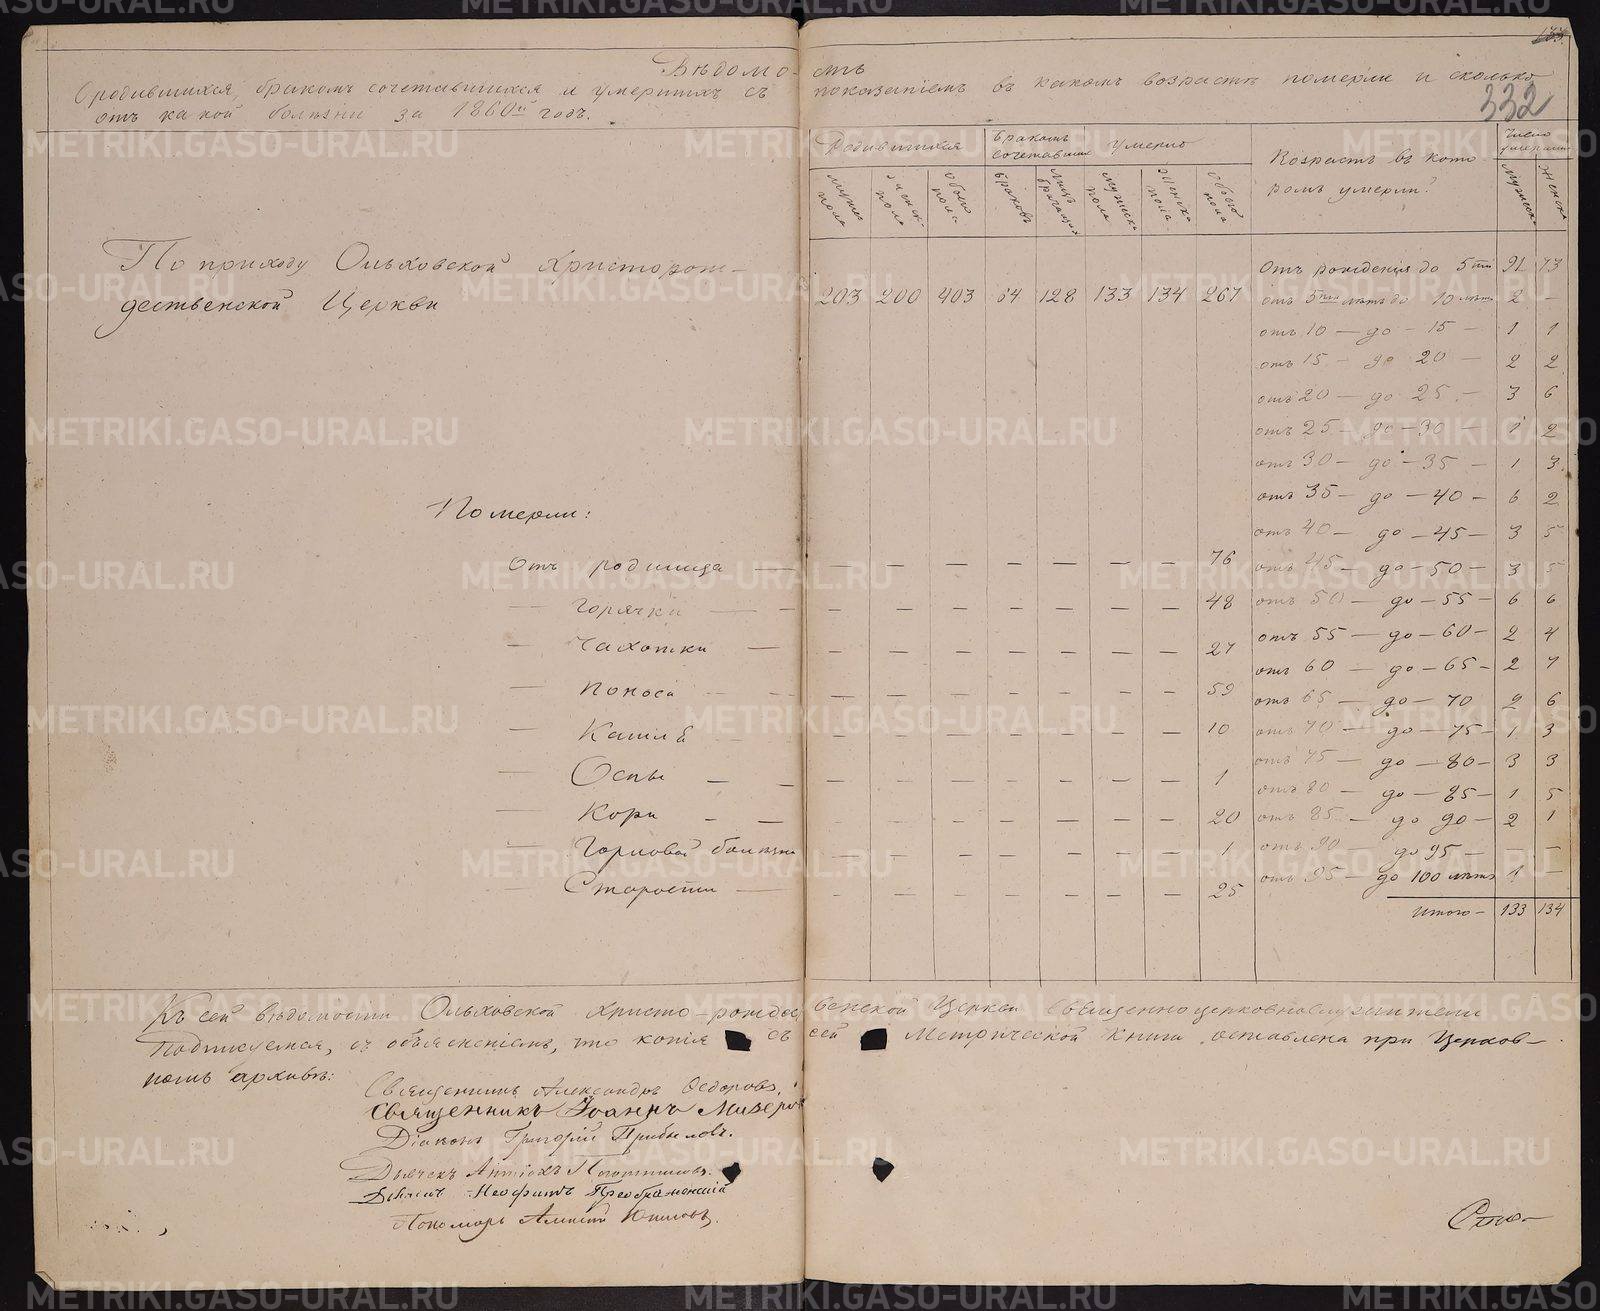 332
Вѣдомость
О родившихся, бракомъ сочетавшихся и умершихъ съ показаніемъ въ какомъ возрастѣ померли и сколько
отъ какой болѣзни за 1860й годъ.
Родившихся
Бракомъ сочетавших
Умерло
Возрастъ въ кото-
ромъ умерли?
Число умерших
мужеска пола
женск. пола
обоего пола
браковъ
мужеска пола
женска пола
обоего пола
мужеска
женска
По приходу Ольховской Христорож-
дественской Церкви
203 200 403 64 128 133 134 267
Отъ рожденія до 5ти 91 73
отъ 5ти лѣтъ до 10 лѣтъ 2 –
отъ 10 — до — 15 — 1 1
отъ 15 — до 20 — 2 2
отъ 20 — до 25 — 3 6
отъ 25 — до — 30 — 1 2
отъ 30 — до — 35 — 1 3
отъ 35 — до — 40 — 6 2
отъ 40 — до — 45 — 3 5
отъ 45 — до — 50 — 3 5
отъ 50 — до — 55 — 6 6
отъ 55 — до — 60 — 2 4
отъ 60 — до — 65 — 2 7
отъ 65 — до — 70 2 6
отъ 70 — до — 75 — 1 3
отъ 75 — до — 80 — 3 3
отъ 80 — до — 85 — 1 5
отъ 85 — до 90 — 2 1
отъ 90 — до 95 — –
отъ 95 — до 100 лѣтъ 1 –
Итого — 133 134
Померли:
Отъ родимца — 76
— Горячки — 48
— Чахотки — 27
— Поноса — 59
— Кашля — 10
— Оспы — 1
— Кори — 20
— Горловой болѣзни — 1
— Старости — 25
Къ сей вѣдомости Ольховской Христо-рождественской Церкви Священноцерковнослужители
Подписуемся, съ объясненіемъ, что копія съ сей Метрической книги оставлена при Церков-
номъ архивѣ:
Священникъ Александръ Федоровъ,
Священникъ Іоаннъ Мизеровъ
Діаконъ Григорій Прибыловъ.
Дьячекъ Антіохъ
Дьячекъ Неофитъ Преображенскій
Пономарь
METRIKI.GASO-URAL.RU